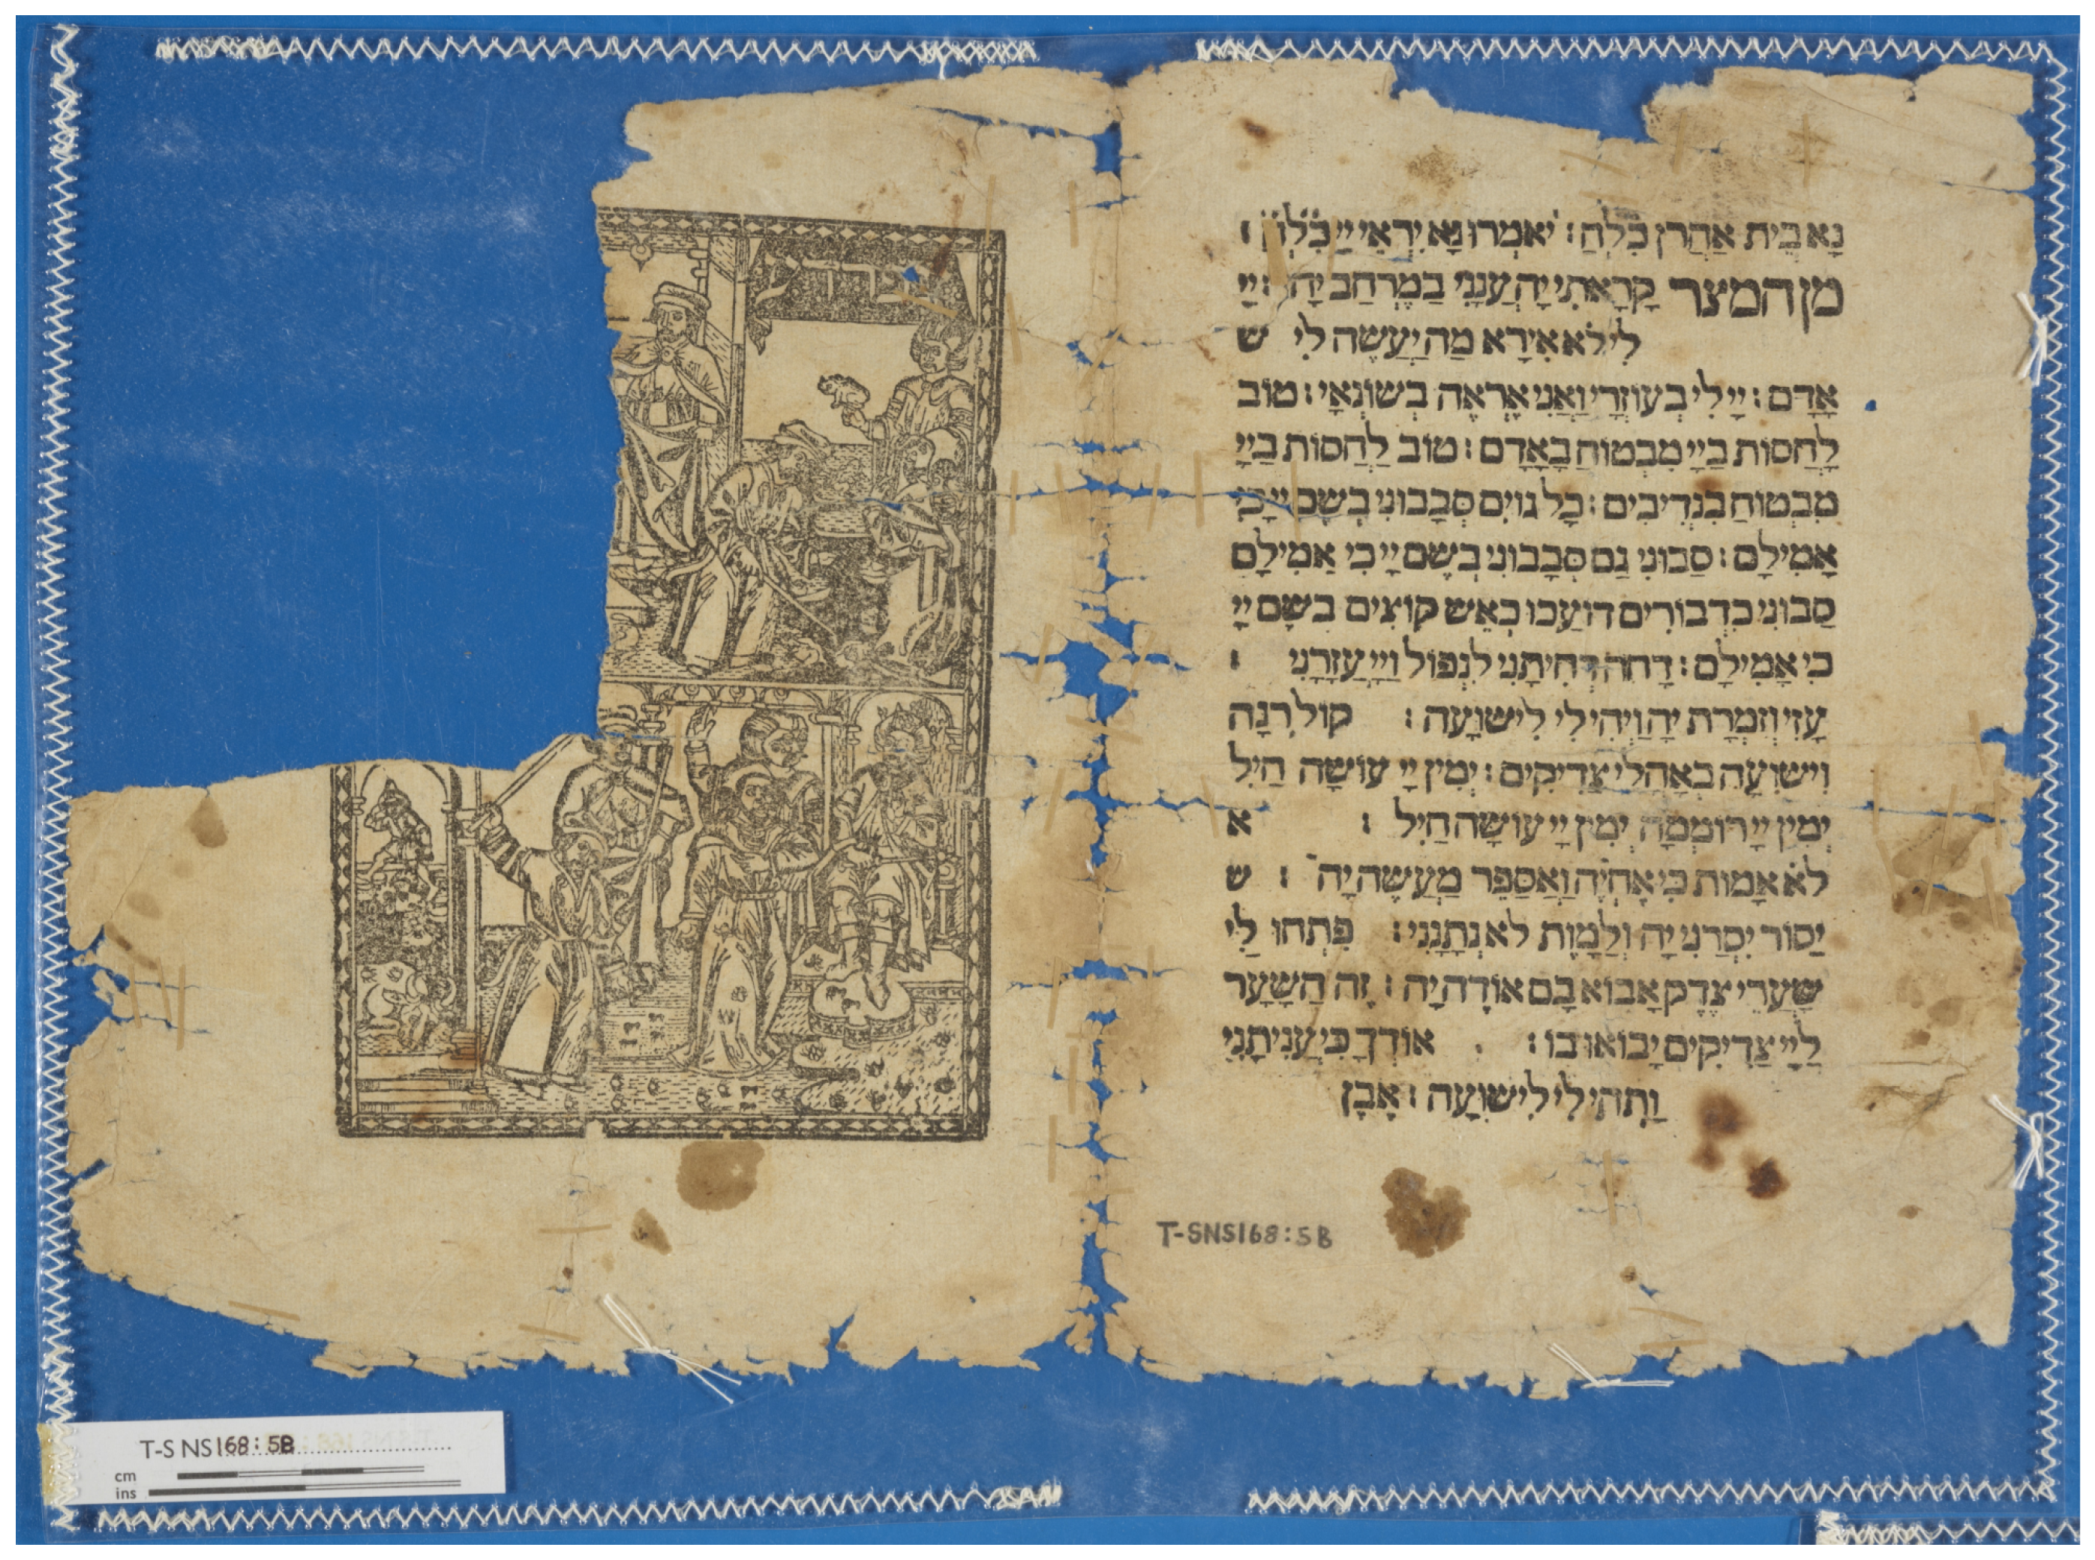 נָא בֵית אַהֲרֹן כֹּלְהַ׃ יֹאמְרוּ נָא יִרְאֵי יְיָ כֹּלְהַ׃
מן המצר קָרָאתִי יָהּ עָנָנִי בַמֶּרְחַב יָהּ׃ יְיָ
לִי לֹא אִירָא מַה יַּעֲשֶׂה לִי ש
אָדָם׃ יְיָ לִי בְּעוֹזְרָי וַאֲנִי אֶרְאֶה בְשׂוֹנְאָי׃ טוֹב
לַחֲסוֹת בַּיְיָ מִבְּטוֹחַ בָּאָדָם׃ טוֹב לַחֲסוֹת בַּיְיָ
מִבְּטוֹחַ בִּנְדִיבִים׃ כָּל גּוֹיִם סְבָבוּנִי בְּשֵׁם יְיָ כִּי
אֲמִילָם׃ סַבּוּנִי גַם סְבָבוּנִי בְּשֵׁם יְיָ כִּי אֲמִילָם
סַבּוּנִי כִדְבוֹרִים דּוֹעֲכוּ כְּאֵשׁ קוֹצִים בְּשֵׁם יְיָ
כִּי אֲמִילָם׃ דָּחֹה דְחִיתַנִי לִנְפּוֹל וַיְיָ עֲזָרָנִי ׃
עָזִּי וְזִמְרָת יָהּ וַיְהִי לִי לִישׁוּעָה׃ קוֹל רִנָּה
וִישׁוּעָה בְּאָהֳלֵי צַדִּיקִים׃ יְמִין יְיָ עוֹשָׂה חָיִל
יְמִין יְיָ רוֹמֵמָה יְמִין יְיָ עוֹשָׂה חָיִל ׃ א
לֹא אָמוּת כִּי אֶחְיֶה וַאֲסַפֵּר מַעֲשֵׂה יָהּ ׃ ש
יַסּוֹר יִסְּרַנִּי יָהּ וְלַמָּוֶת לֹא נְתָנָנִי׃ פִּתְחוּ לִי
שַׁעֲרֵי צֶדֶק אָבוֹא בָם אוֹדֶה יָהּ׃ זֶה הַשַּׁעַר
לַיְיָ צַדִּיקִים יָבוֹאוּ בוֹ׃ אוֹדְךָ כִּי עֲנִיתָנִי
וַתְּהִי לִי לִישׁוּעָה׃ אֶבֶן
T-SNS168:5B
צפרדע
T-S NS168:5B
cm
ins